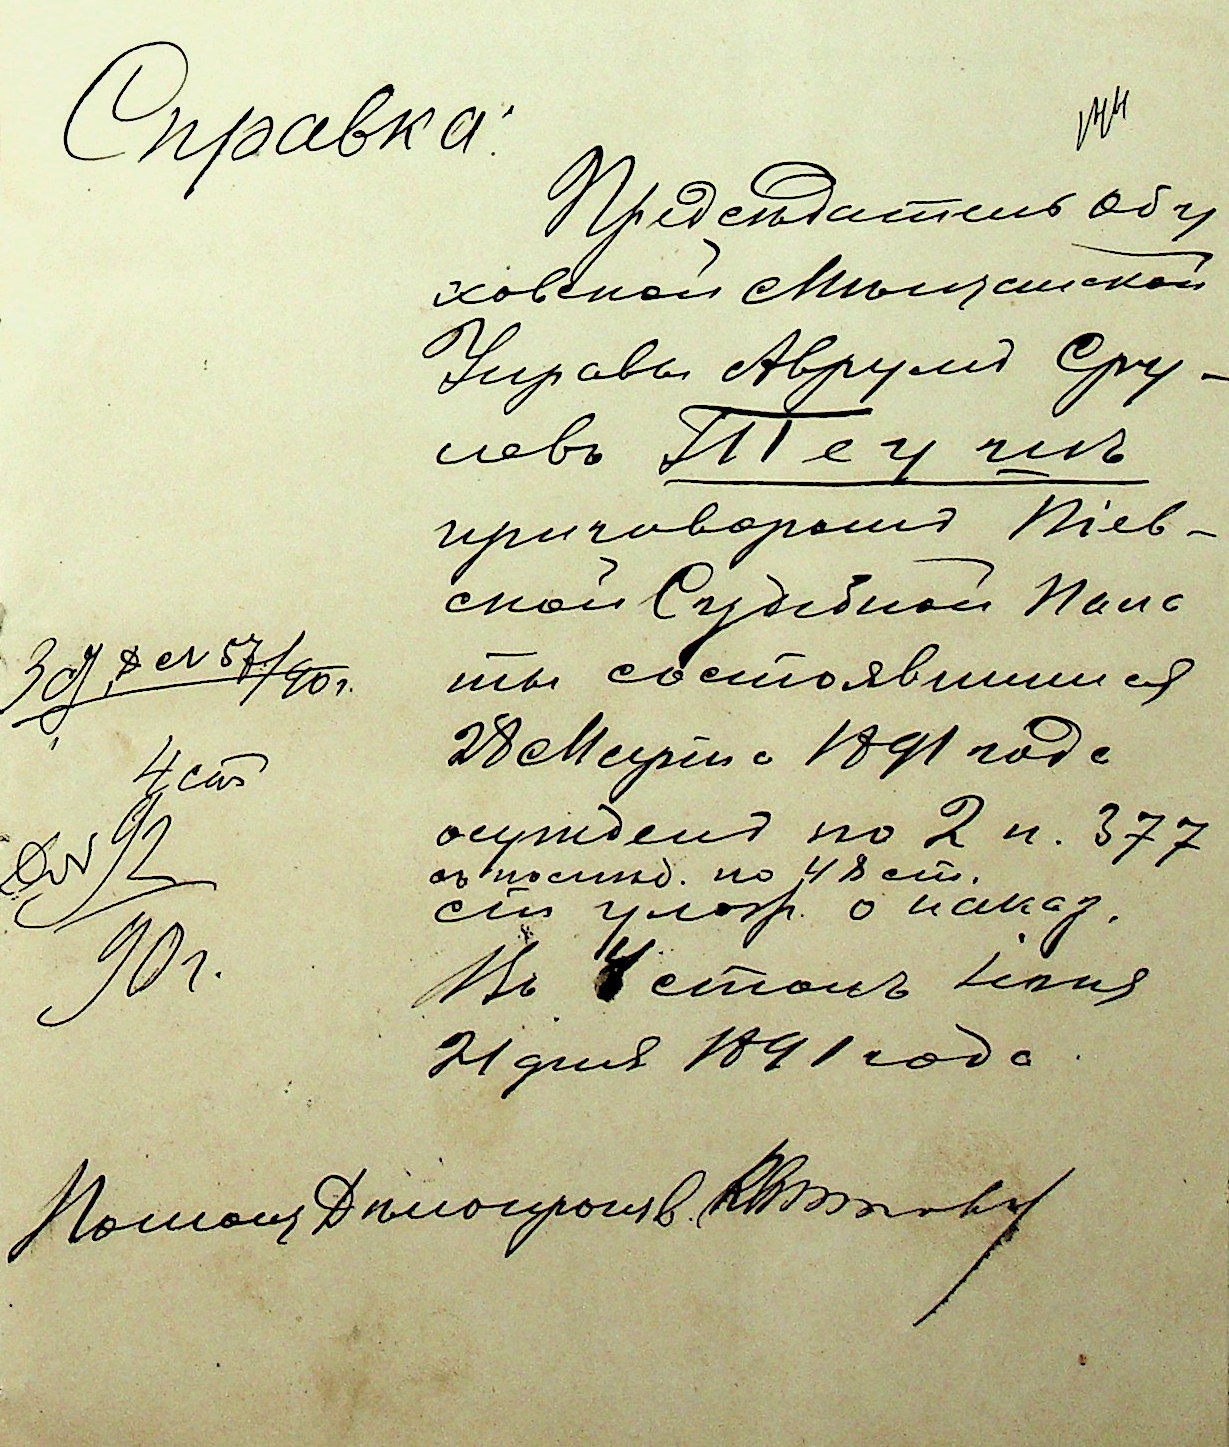 Справка:
Предсѣдатель Обу
ховской Мѣщанской
Управы Аврумъ Сру-
левъ
приговоромъ Кіев-
ской Судебной Пала
ты состоявшимся
28 Марта 1891 года
осужденъ по 2 п. 377
съ послѣд. по 48 ст.
ст. улож. о наказ.
Въ 4 столъ Іюня
21 дня 1891 года.
№ 57/90 г.
4 ст
92
90 г.
Помощ Дѣлопроизв.